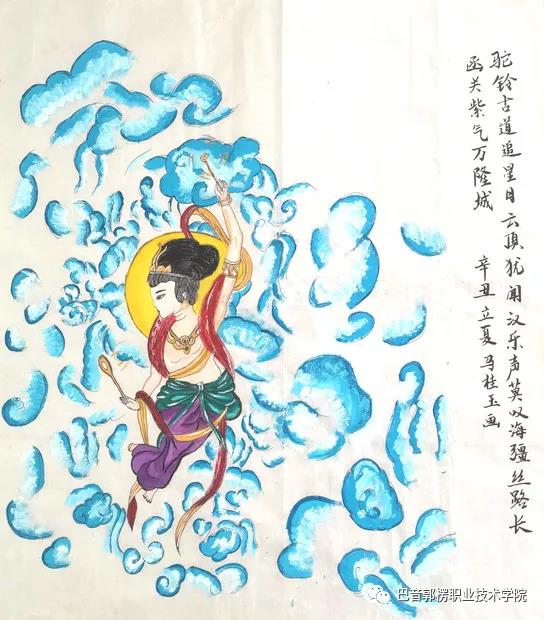 驼铃古道追星日云顶犹闻汉乐声莫叹海疆丝路长
函关紫气万隆城 辛丑立夏马桂玉画
巴音郭楞职业技术学院